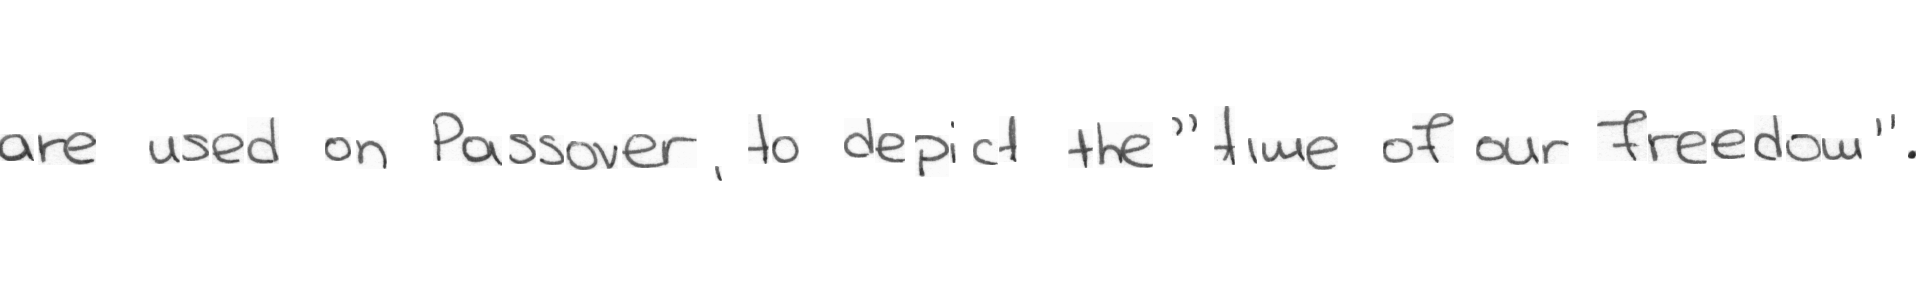 are used on Passover, to depict the "time of our freedom".